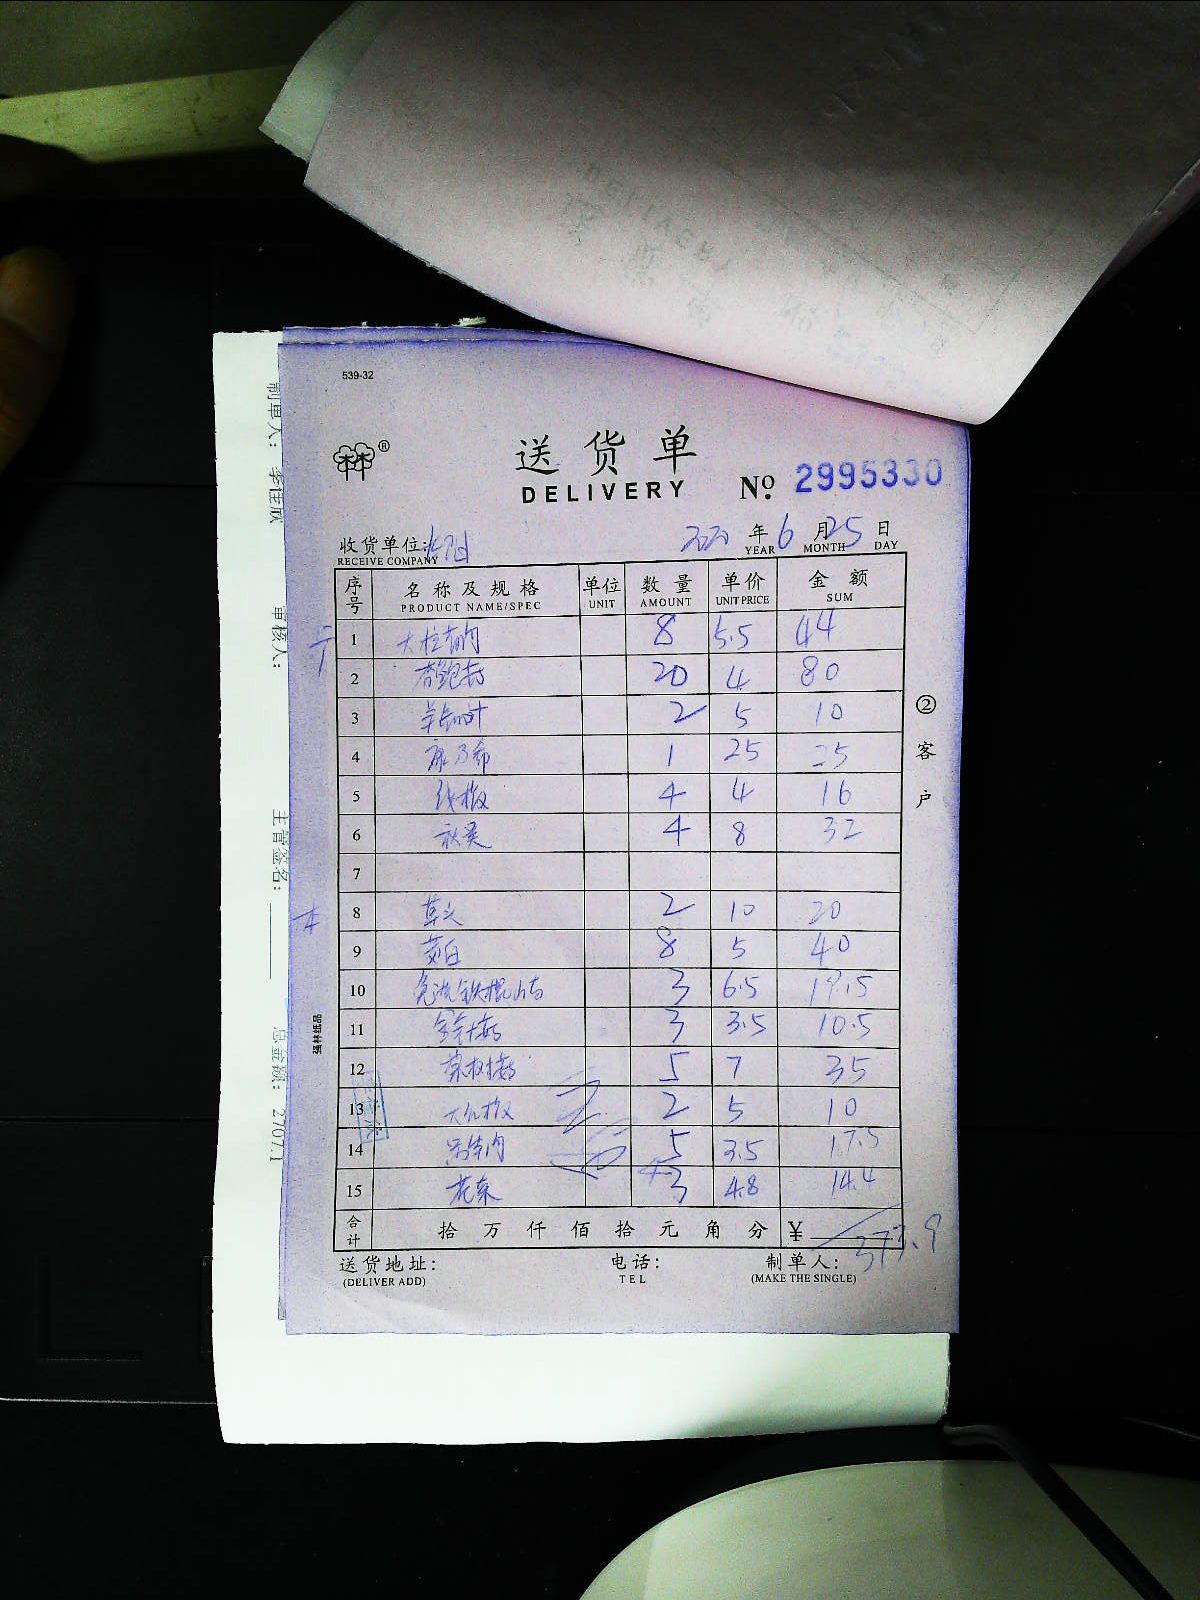 539-32
送货单
DELIVERY № 2995330
收货单位: 年 6 月 25 日
RECEIVE COMPANY YEAR MONTH DAY
序号 名称及规格 单位 数量 单价 金额
PRODUCT NAME/SPEC UNIT AMOUNT UNIT PRICE SUM
1 8 5.5 44
2 杏鲍菇 20 4 80
3 2 5 10
4 1 25 25
5 线椒 4 4 16
6 秋葵 4 8 32
7
8 草头 2 10 20
9 茭白 8 5 40
10 铁棍山药 3 6.5 19.5
11 金针菇 3 3.5 10.5
12 5 7 35
13 2 5 10
14 5 3.5 17.5
15 花菜 3 4.8 14.4
合计 拾 万 仟 佰 拾 元 角 分 ¥ 373.9
送货地址: 电话: 制单人:
(DELIVER ADD) TEL (MAKE THE SINGLE)
②客户
强林纸品
制单人: 李佳欣
审核人:
主管签名:
总金额: 2707.1